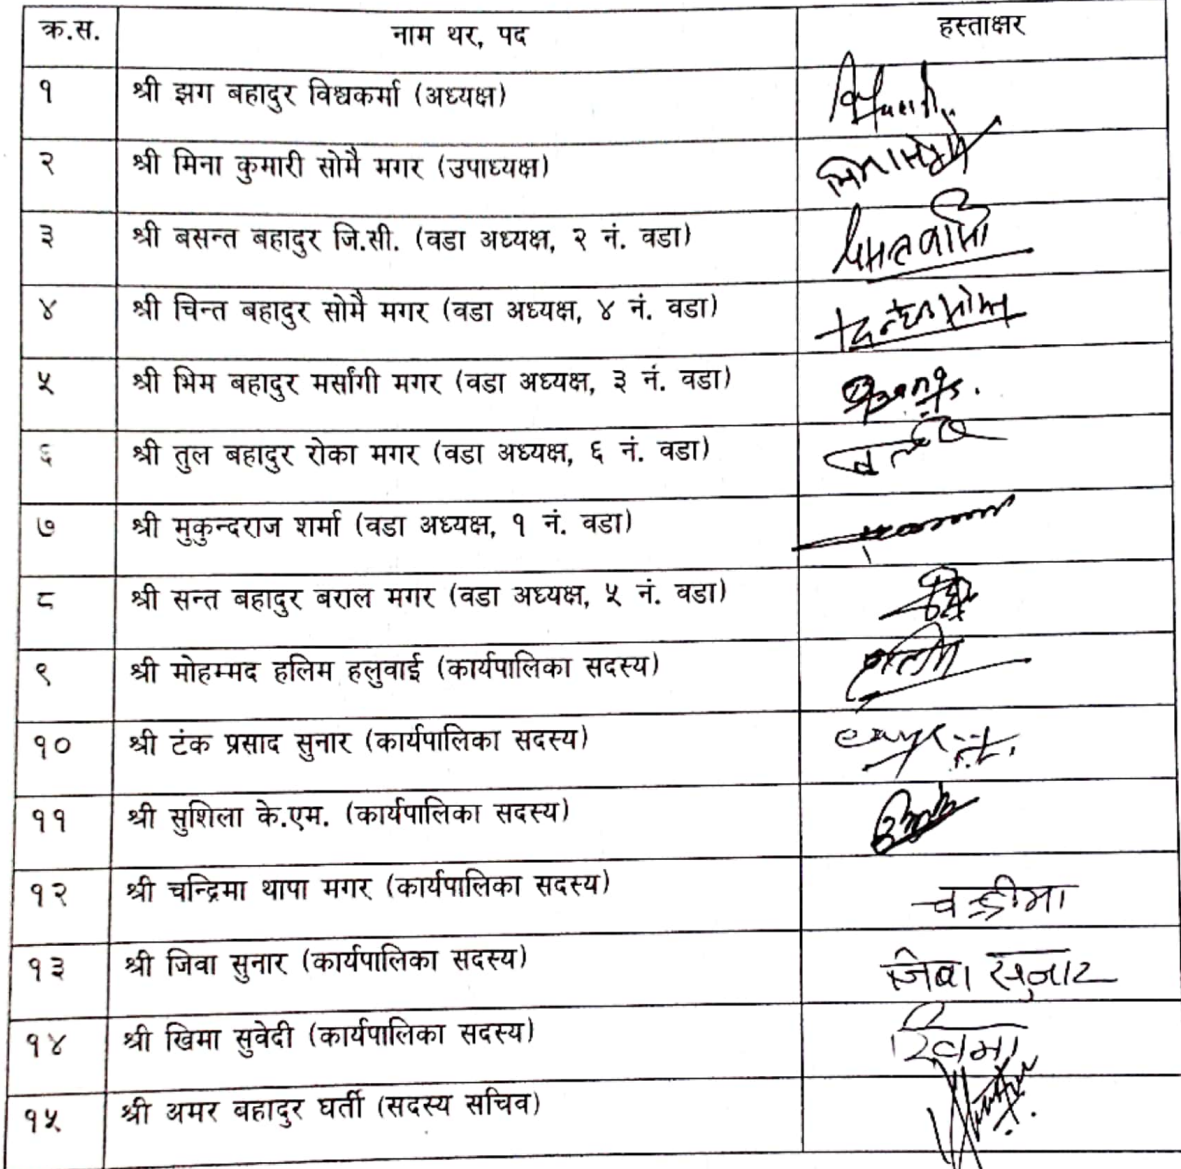 क्र.स. नाम थर, पद हस्ताक्षर
१ श्री झग बहादुर विश्वकर्मा (अध्यक्ष)
२ श्री मिना कुमारी सोमै मगर (उपाध्यक्ष)
३ श्री बसन्त बहादुर जि.सी. (वडा अध्यक्ष, २ नं. वडा)
४ श्री चिन्त बहादुर सोमै मगर (वडा अध्यक्ष, ४ नं. वडा)
५ श्री भिम बहादुर मर्सांगी मगर (वडा अध्यक्ष, ३ नं. वडा)
६ श्री तुल बहादुर रोका मगर (वडा अध्यक्ष, ६ नं. वडा)
७ श्री मुकुन्दराज शर्मा (वडा अध्यक्ष, १ नं. वडा)
८ श्री सन्त बहादुर बराल मगर (वडा अध्यक्ष, ५ नं. वडा)
९ श्री मोहम्मद हलिम हलुवाई (कार्यपालिका सदस्य)
१० श्री टंक प्रसाद सुनार (कार्यपालिका सदस्य)
११ श्री सुशिला के.एम. (कार्यपालिका सदस्य)
१२ श्री चन्द्रिमा थापा मगर (कार्यपालिका सदस्य) चन्द्रीमा
१३ श्री जिवा सुनार (कार्यपालिका सदस्य) जिबा सुनार
१४ श्री खिमा सुवेदी (कार्यपालिका सदस्य) खिमा
१५ श्री अमर बहादुर घर्ती (सदस्य सचिव)